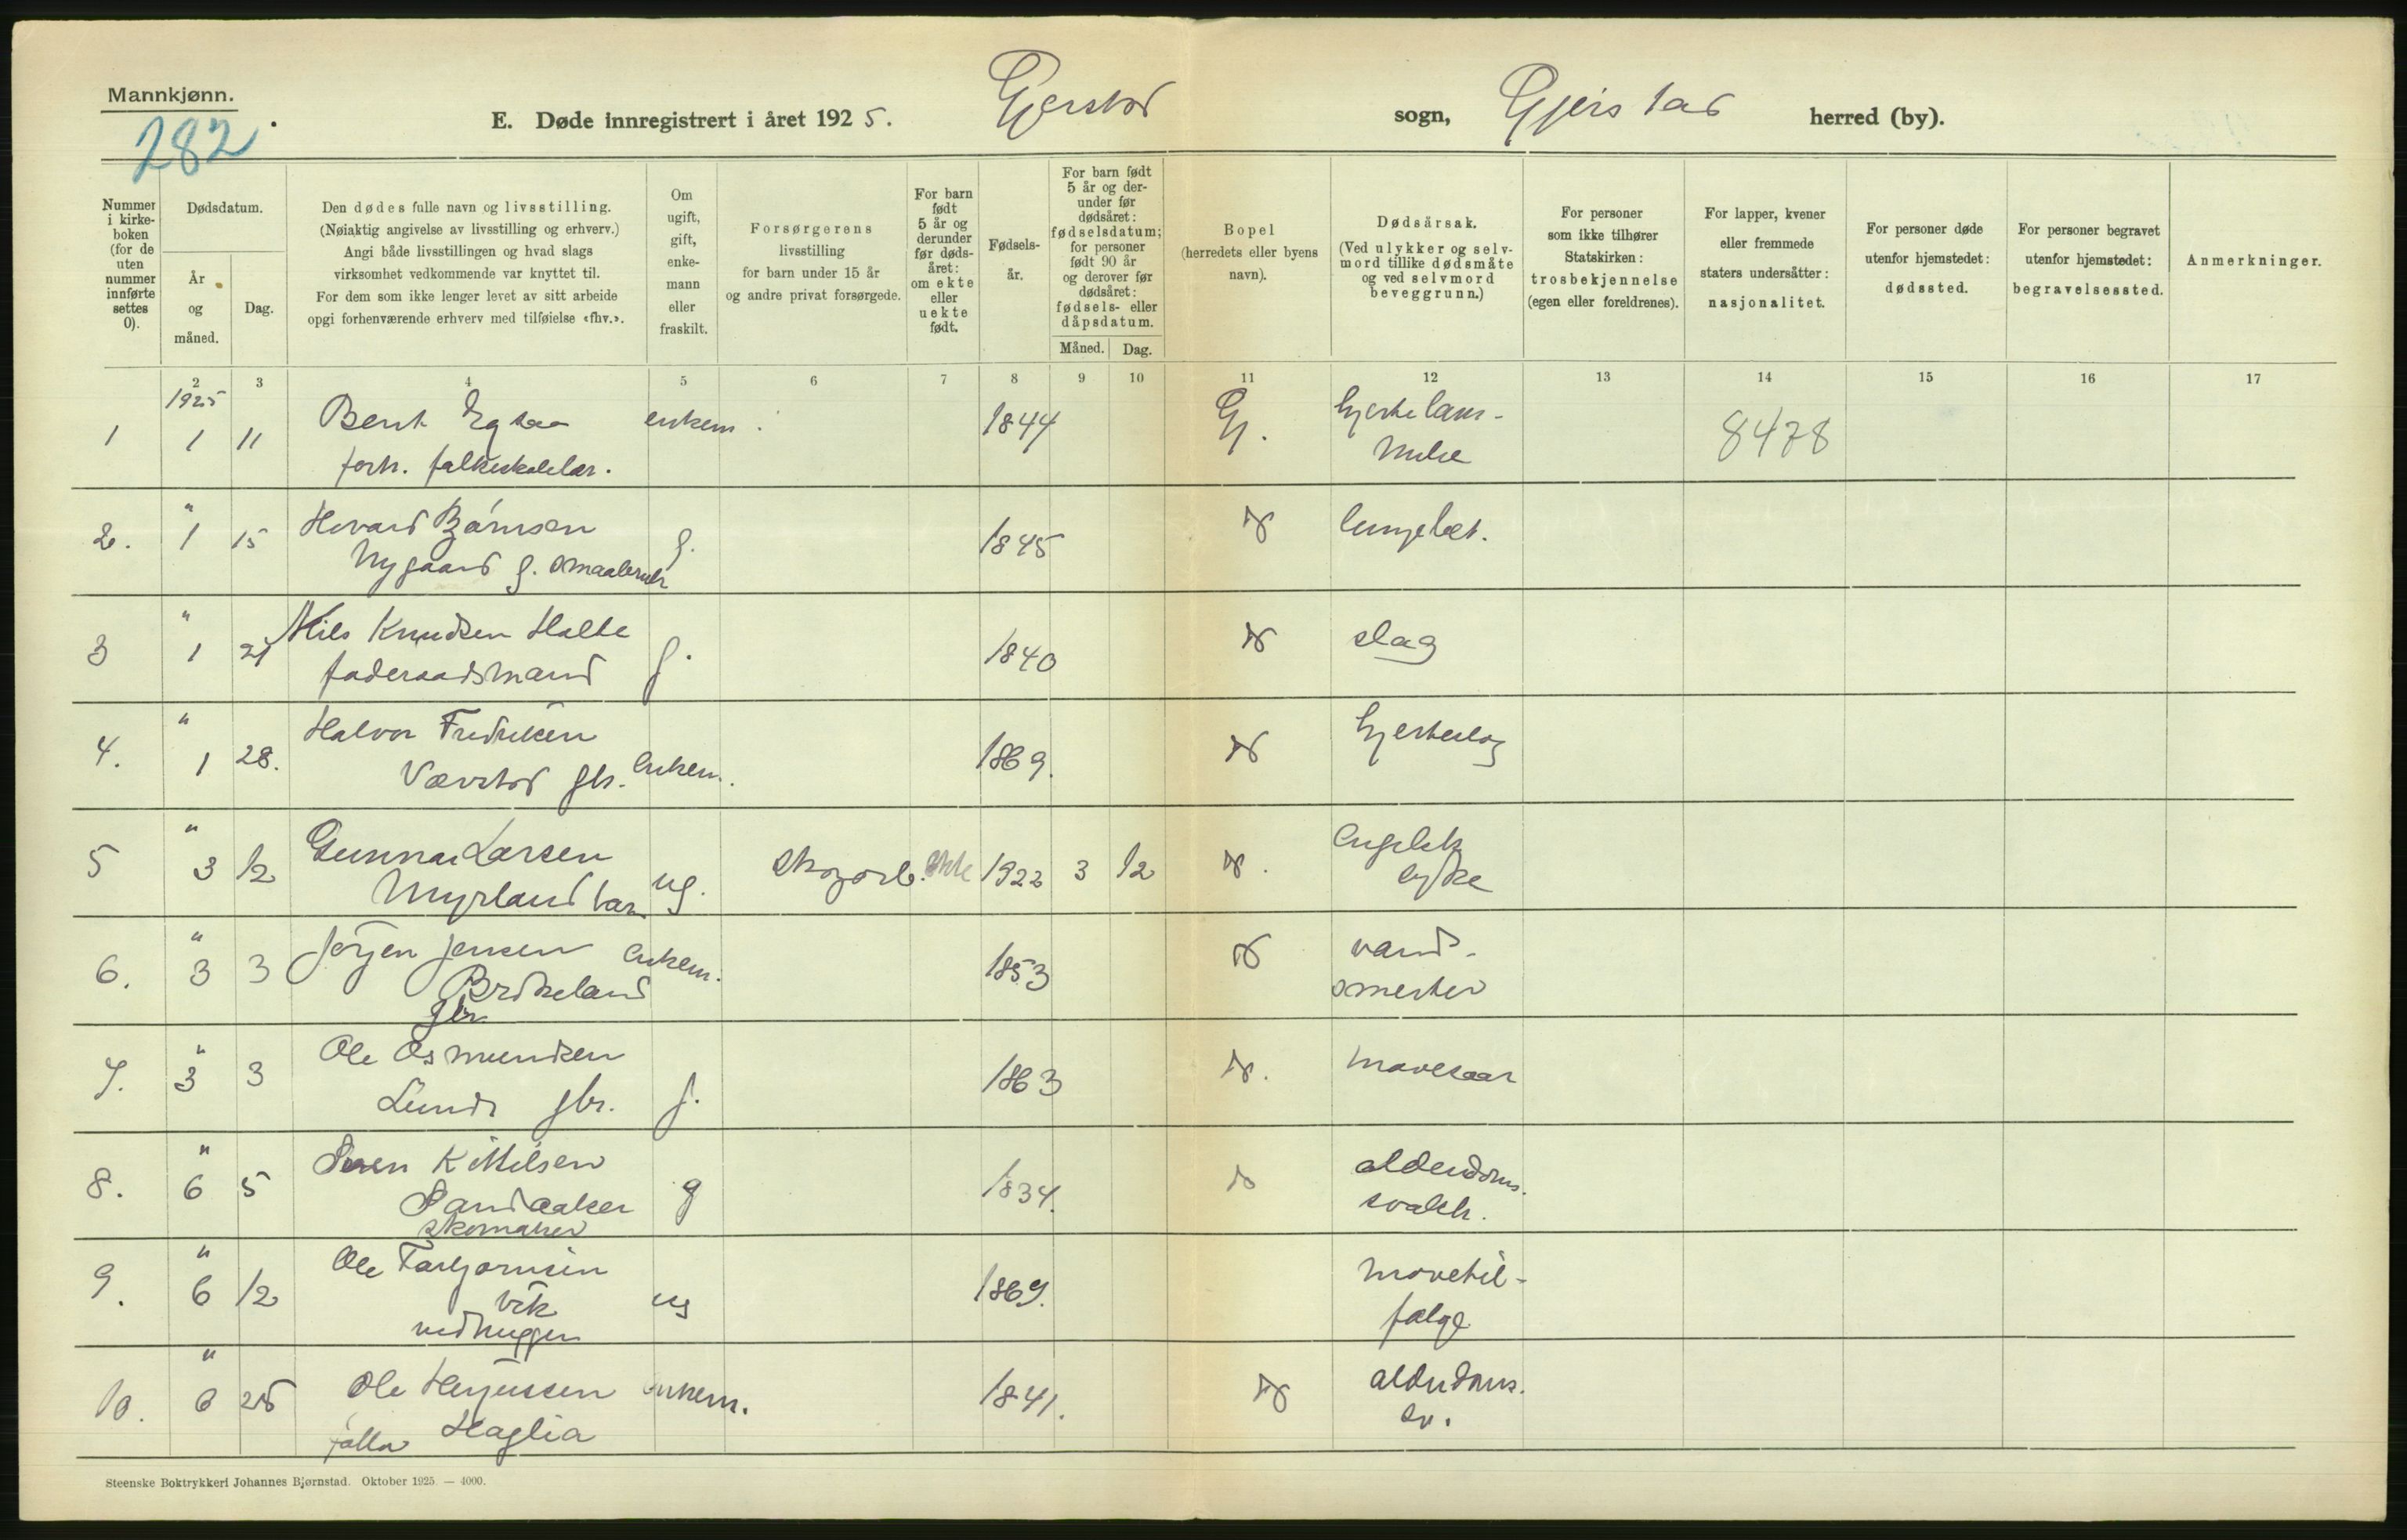 Mannkjønn.
282.
E. Døde innregistrert i året 1925. Gjerstad sogn, Gjerstad herred (by).
Nummer i kirkeboken (for de uten nummer innførte settes 0).
Dødsdatum.
År og måned.
Dag.
Den dødes fulle navn og livsstilling.
(Nøiaktig angivelse av livsstilling og erhverv.)
Angi både livsstillingen og hvad slags
virksomhet vedkommende var knyttet til.
For dem som ikke lenger levet av sitt arbeide
opgi forhenværende erhverv med tilføielse «fhv.».
Om ugift, gift, enkemann eller fraskilt.
Forsørgerens
livsstilling
for barn under 15 år
og andre privat forsørgede.
For barn født 5 år og derunder før dødsåret: om ekte eller uekte født.
Fødselsår.
For barn født 5 år og derunder før dødsåret: fødselsdatum; for personer født 90 år og derover før dødsåret: fødsels- eller dåpsdatum.
Måned. Dag.
Bopel
(herredets eller byens
navn).
Dødsårsak.
(Ved ulykker og selvmord tillike dødsmåte og ved selvmord beveggrunn.)
For personer
som ikke tilhører
Statskirken:
trosbekjennelse
(egen eller foreldrenes).
For lapper, kvener
eller fremmede
staters undersåtter:
nasjonalitet.
For personer døde
utenfor hjemstedet:
dødssted.
For personer begravet
utenfor hjemstedet:
begravelsessted.
Anmerkninger.
2 3 4 5 6 7 8 9 10 11 12 13 14 15 16 17
1925
1 1 11 Bent enkem. 1844 Gj. hjertelam- 8478
forh. folkeskolelær. melse
"
2. 1 15 Hovard Bjørnsen g. 1845 lungebet.
Nygaard g.
"
3 1 21 Nils Knudsen Halte g. 1840 slag
føderaadsmand
"
4. 1 28. Halvor Fredriksen enkem. 1869. hjerteslag
Vævstad gbr.
"
5 3 12 Gunnar Larsen ug. skogarb. ekte 1922 3 12 engelsk
Myrland barn syke
"
6. 3 3 Jørgen Jensen enkem. 1853 vand-
Brokeland smerter
gbr
"
7. 3 3 Ole Osmundsen g. 1863 mavesaar
Lunde gbr.
"
8. 6 5 Søren Kittilsen g 1834. alderdoms.
Sandaaker svakh.
skomaker
"
9. 6 12 Ole Torbjørnsen ug 1869. mavetil-
Vik følge
vedhugger
"
10. 6 25 Ole enkem. 1841. alderdoms.
Haglia sv.
Steenske Boktrykkeri Johannes Bjørnstad. Oktober 1925. — 4000.